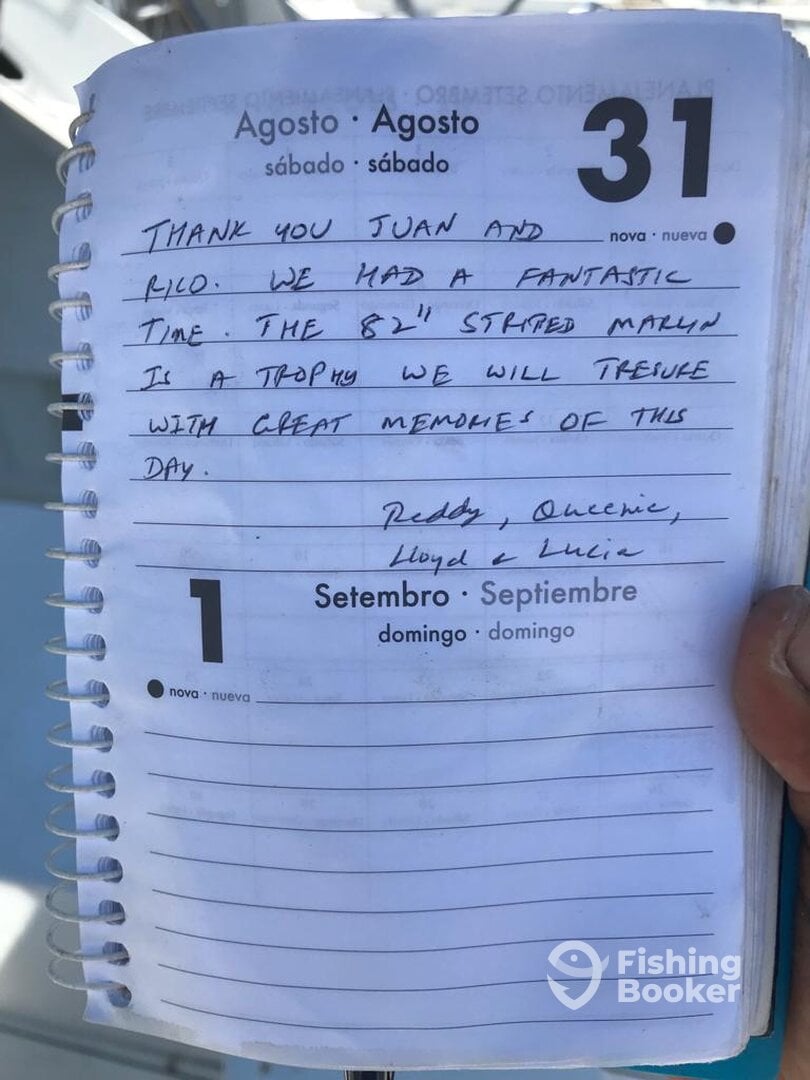 PLANEJAMENTO SETEMBRO · PLANEAMIENTO SEPTIEMBRE
Agosto · Agosto
31
sábado · sábado
nova · nueva
THANK YOU JUAN AND
RICO. WE HAD A FANTASTIC
TIME. THE 82" STRIPED MARLIN
IS A TROPHY WE WILL TRESURE
WITH GREAT MEMORIES OF THIS
DAY.
Reddy, Queenie,
Lloyd & Lucia
1
Setembro · Septiembre
domingo · domingo
nova · nueva
Fishing
Booker